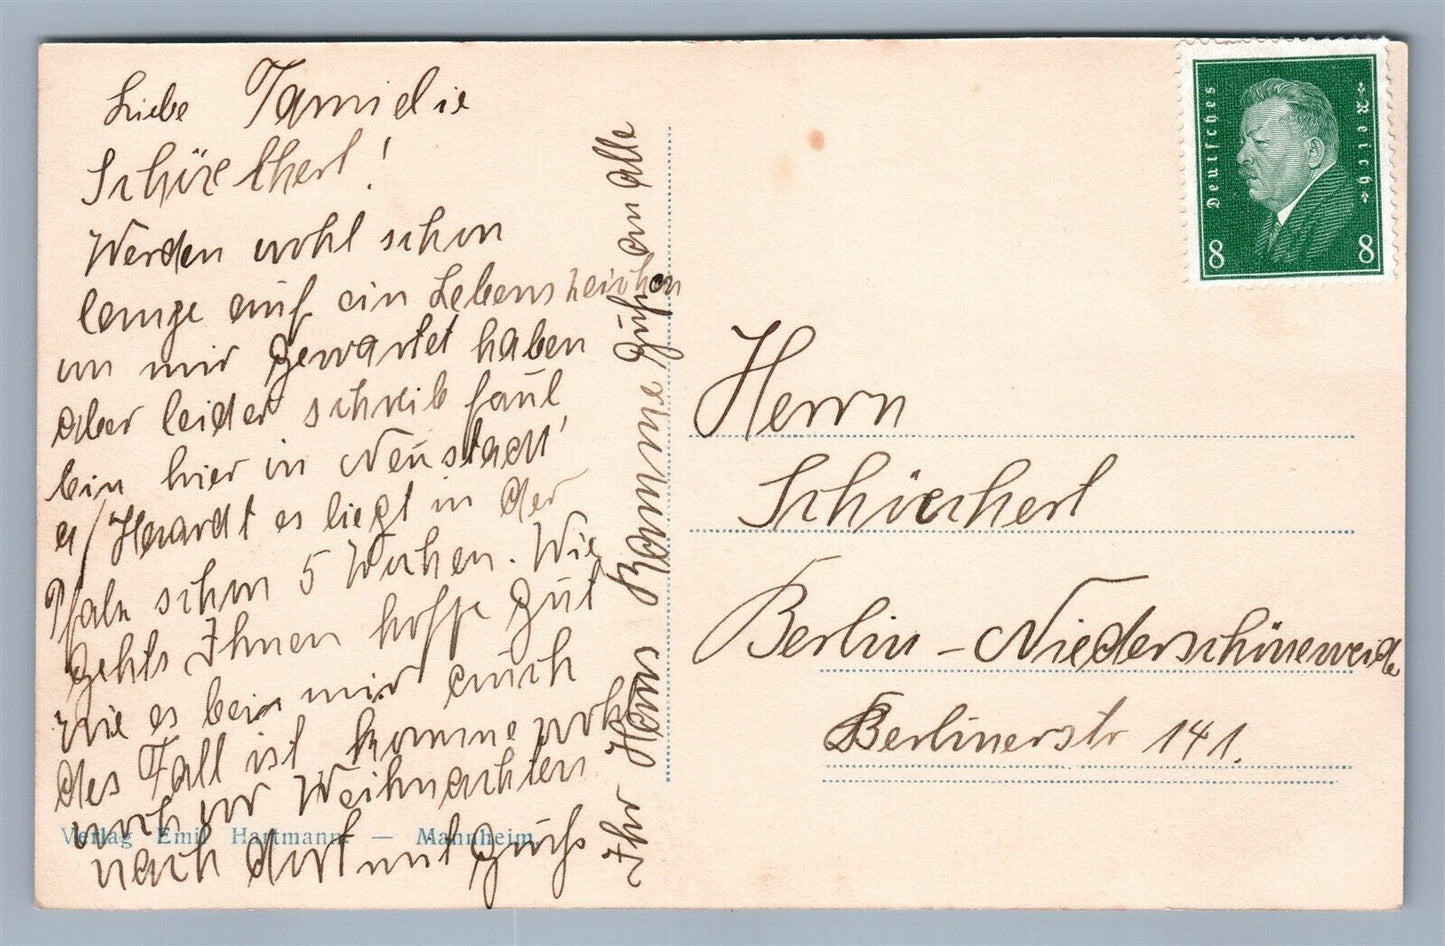 Liebe Familie
Schöre Chert!
Werden wohl schon
lange auf ein Lebenszeichen
un mir gewartet haben
aber leider schreib faul,
bin hier in Neustadt
a/Haardt es liegt in der
Pfalz schon 5 Wochen. Wie
gehts Ihnen hoffe gut
wie es bein mir auch
des Fall ist komme wohl
noch vor Weihnachten
nach dort mit Gruhs
Ihr Hans Gruhs an alle
Verlag Emil Hartmann — Mannheim.
Deutsches Reich
8 8
Herrn
Berlin – Niederschöneweide
Berlinerstr 141.